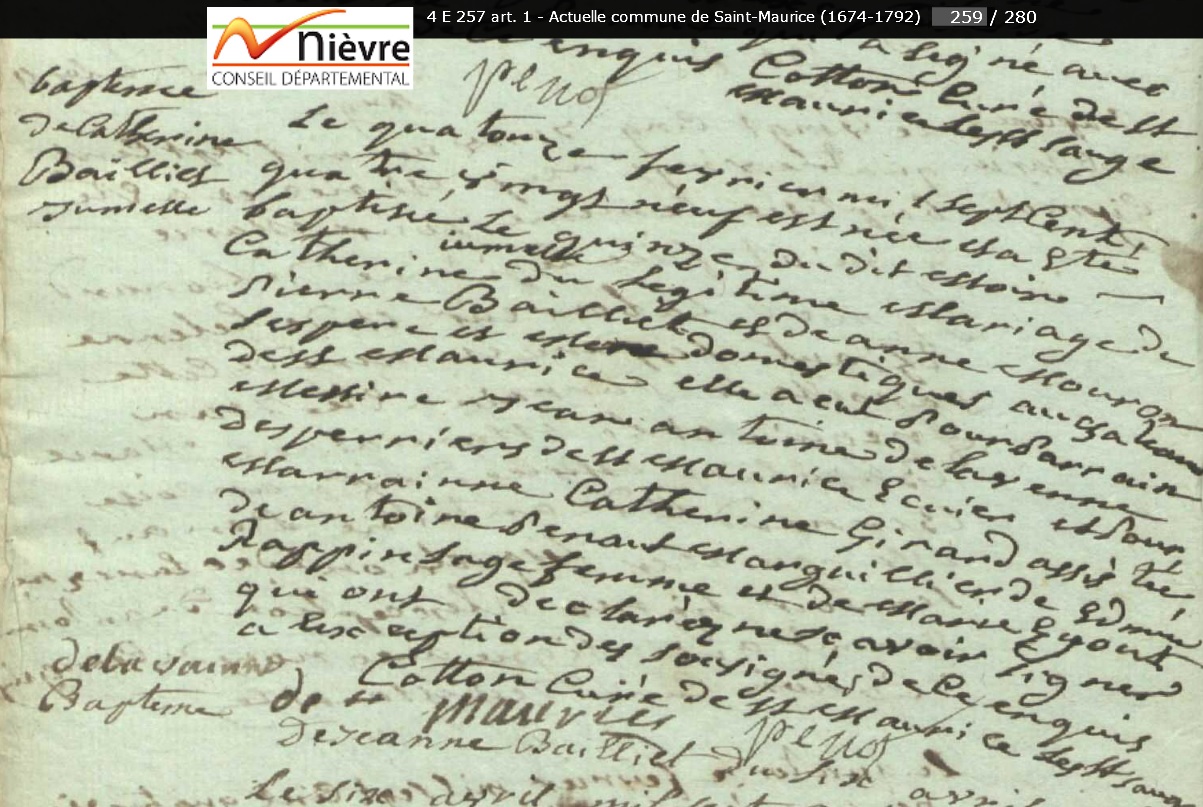 4 E 257 art. 1 - Actuelle commune de Saint-Maurice (1674-1792) 259 / 280
nièvre
CONSEIL DÉPARTEMENTAL
a signé avec
enquis Cotton Curé de st
penot maurice les st sauge
baptesme
de Catherine
Bailliet
jumelle
Le quatorze fevrier mil sept Cent
quatre vingt neuf est née et a eté
baptisée le quinze du dit moire
jumelle
Catherine du legitime mariage de
pierre Bailliet et de anne mouron
ses pere et mere domestiques au
de st maurice elle a eut pour parrain
messire jean antoine de lavenne
desperriers de st maurice Ecuier et pour
marrainne Catherine Girard assisté
de antoine penaut manguillier de Edmée
Rappin sage femme et de marie Gyout
qui ont declaré ne scavoir signer
a lexception des sousignés de ce enquis
Cotton Curé de st maurice les st sauge
de lavenne
de st maurice
penot
Bapteme
de jeanne Bailliet du six avril
Le six avril mil sept